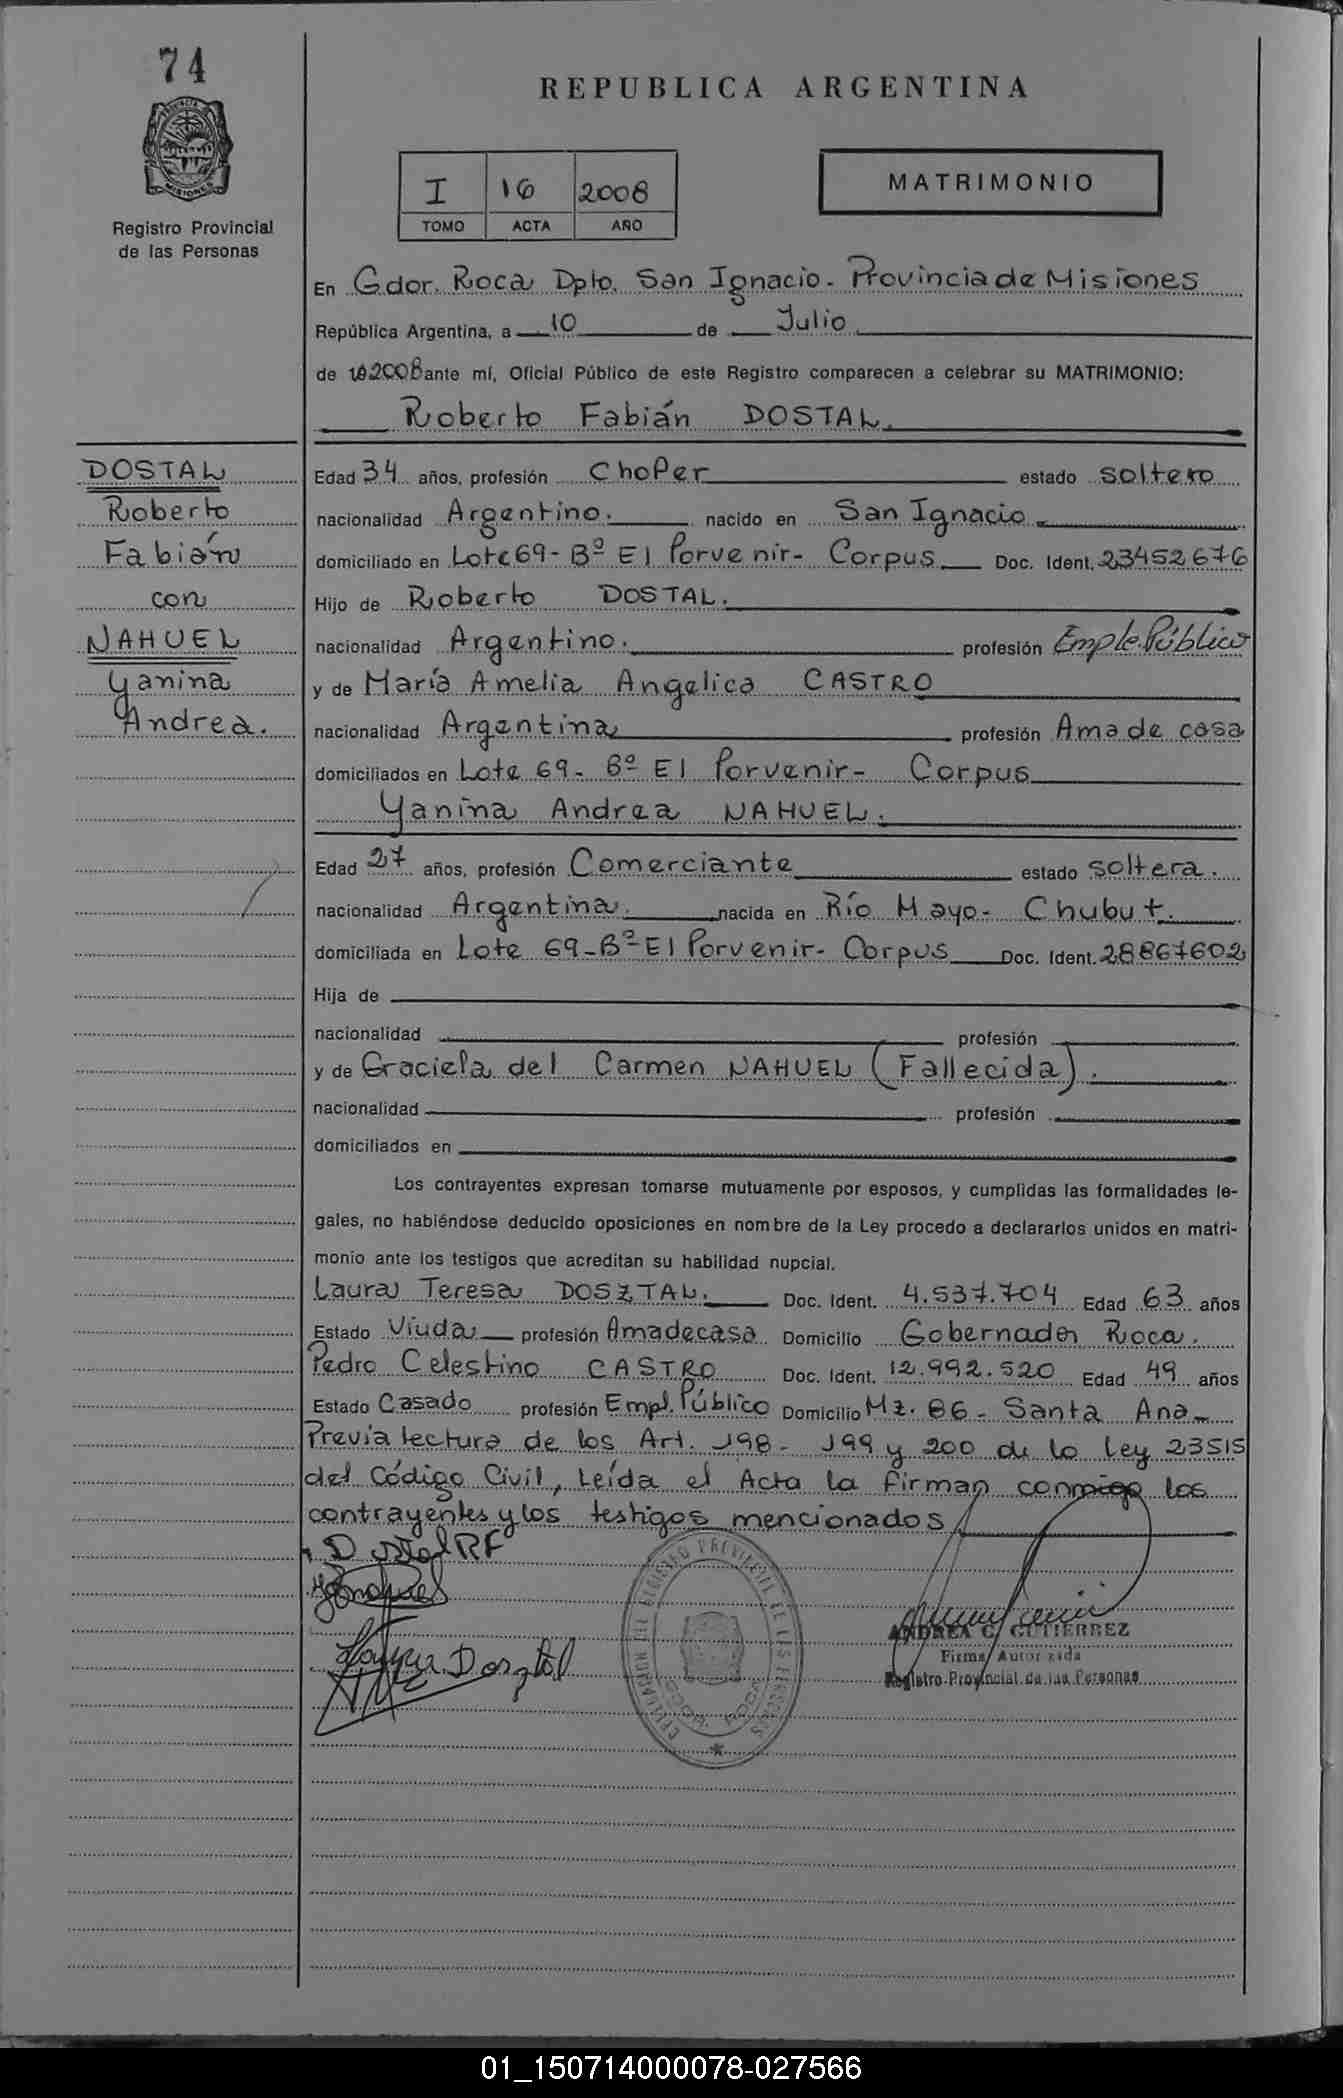 74
REPUBLICA ARGENTINA
PROVINCIA
MISIONES
Registro Provincial
de las Personas
I 16 2008
TOMO ACTA AÑO
MATRIMONIO
En Gdor. Roca Dpto. San Ignacio - Provincia de Misiones
República Argentina, a 10 de Julio
de 2008 ante mí, Oficial Público de este Registro comparecen a celebrar su MATRIMONIO:
Roberto Fabián DOSTAL
DOSTAL
Roberto
Fabián
con
NAHUEL
Yanina
Andrea.
Edad 34 años, profesión Chofer estado soltero
nacionalidad Argentino. nacido en San Ignacio
domiciliado en Lote 69 - Bº El Porvenir - Corpus Doc. Ident. 23452676
Hijo de Roberto DOSTAL.
nacionalidad Argentino. profesión Emple. Público
y de María Amelia Angelica CASTRO
nacionalidad Argentina profesión Ama de casa
domiciliados en Lote 69 - Bº El Porvenir - Corpus
Yanina Andrea NAHUEL.
Edad 27 años, profesión Comerciante estado soltera.
nacionalidad Argentina. nacida en Río Mayo - Chubut.
domiciliada en Lote 69 - Bº El Porvenir - Corpus Doc. Ident. 28867602
Hija de
nacionalidad profesión
y de Graciela del Carmen NAHUEL (Fallecida).
nacionalidad profesión
domiciliados en
Los contrayentes expresan tomarse mutuamente por esposos, y cumplidas las formalidades le-
gales, no habiéndose deducido oposiciones en nombre de la Ley procedo a declararlos unidos en matri-
monio ante los testigos que acreditan su habilidad nupcial.
Laura Teresa DOSZTAL. Doc. Ident. 4.537.704 Edad 63 años
Estado Viuda profesión Ama de casa Domicilio Gobernador Roca.
Pedro Celestino CASTRO Doc. Ident. 12.992.520 Edad 49 años
Estado Casado profesión Empl. Público Domicilio Mz. 86 - Santa Ana
Previa lectura de los Art. 198 - 199 y 200 de la Ley 23515
del Código Civil, Leída el Acta la firman conmigo los
contrayentes y los testigos mencionados
Dostal RF
Laura Dosztal
ANDREA C. GUTIERREZ
Firma Autorizada
Registro Provincial de las Personas
01_150714000078-027566